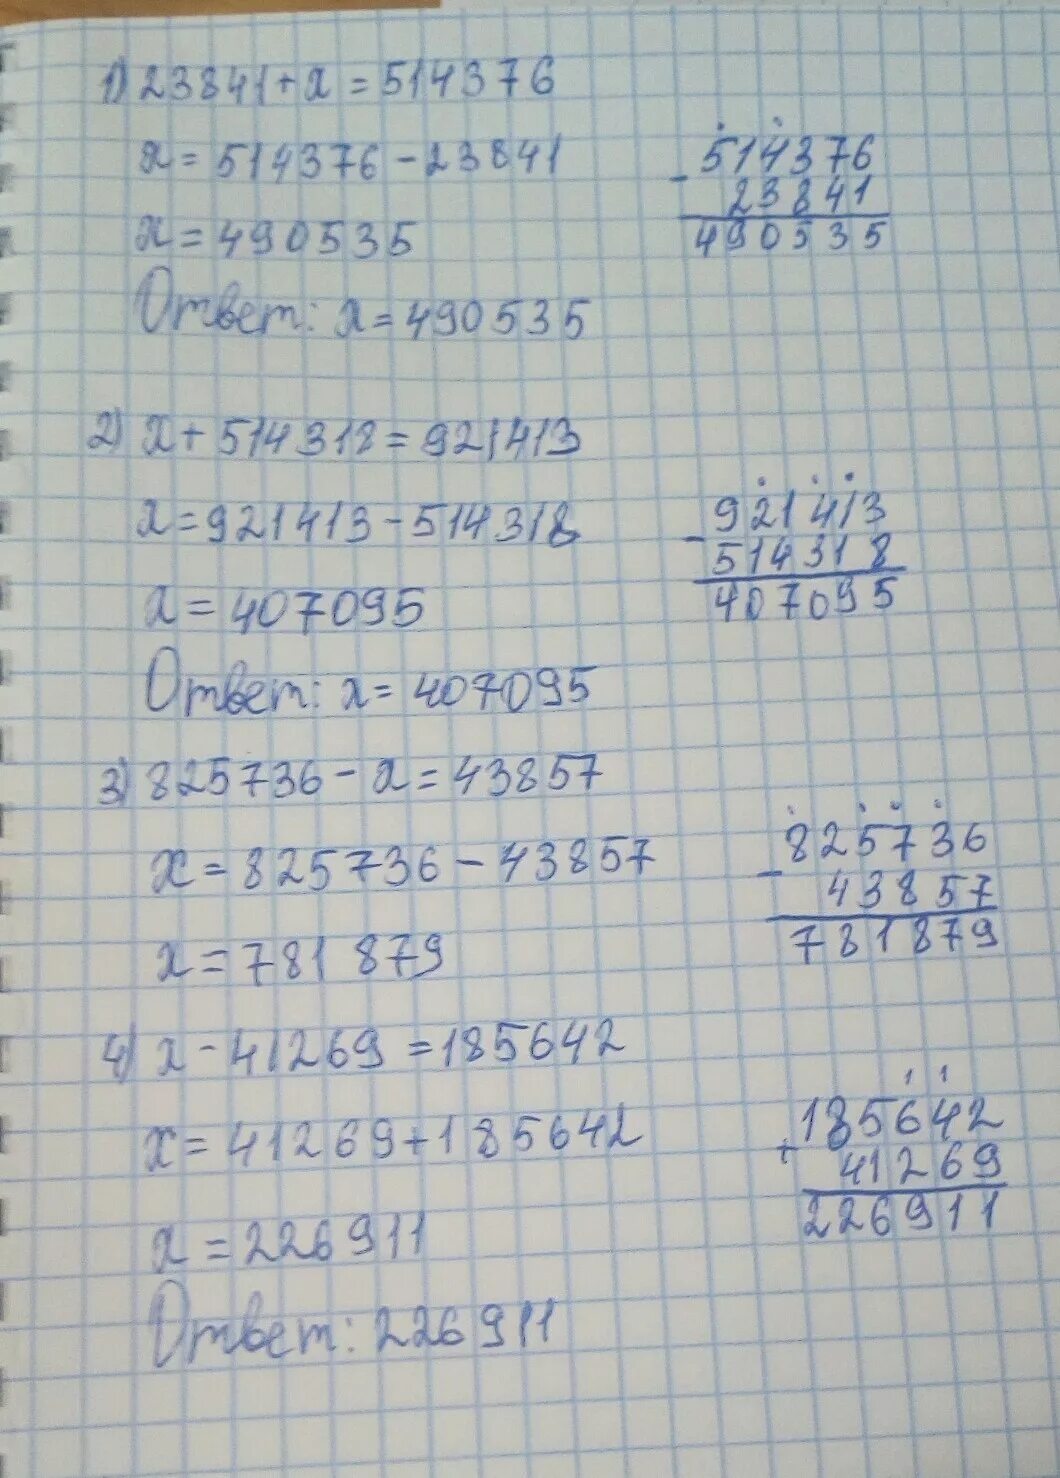 1) 23841 + x = 514376
x = 514376 - 23841
x = 490535
Ответ: x = 490535
- 514376
23841
490535
2) x + 514318 = 921413
x = 921413 - 514318
x = 407095
Ответ: x = 407095
- 921413
514318
407095
3) 825736 - x = 43857
x = 825736 - 43857
x = 781 879
- 825736
43857
781879
4) x - 41269 = 185642
x = 41269 + 185642
x = 226911
Ответ: 226911
1 1
+ 185642
41269
226911